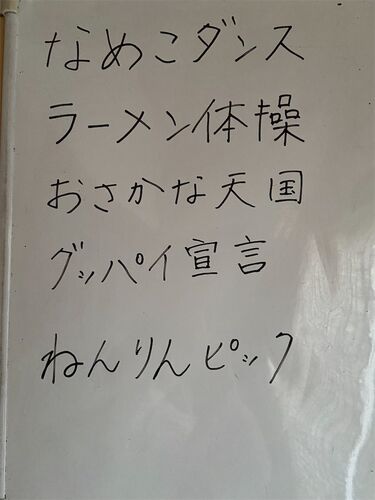 なめこダンス
ラーメン体操
おさかな天国
グッパイ宣言
ねんりんピック